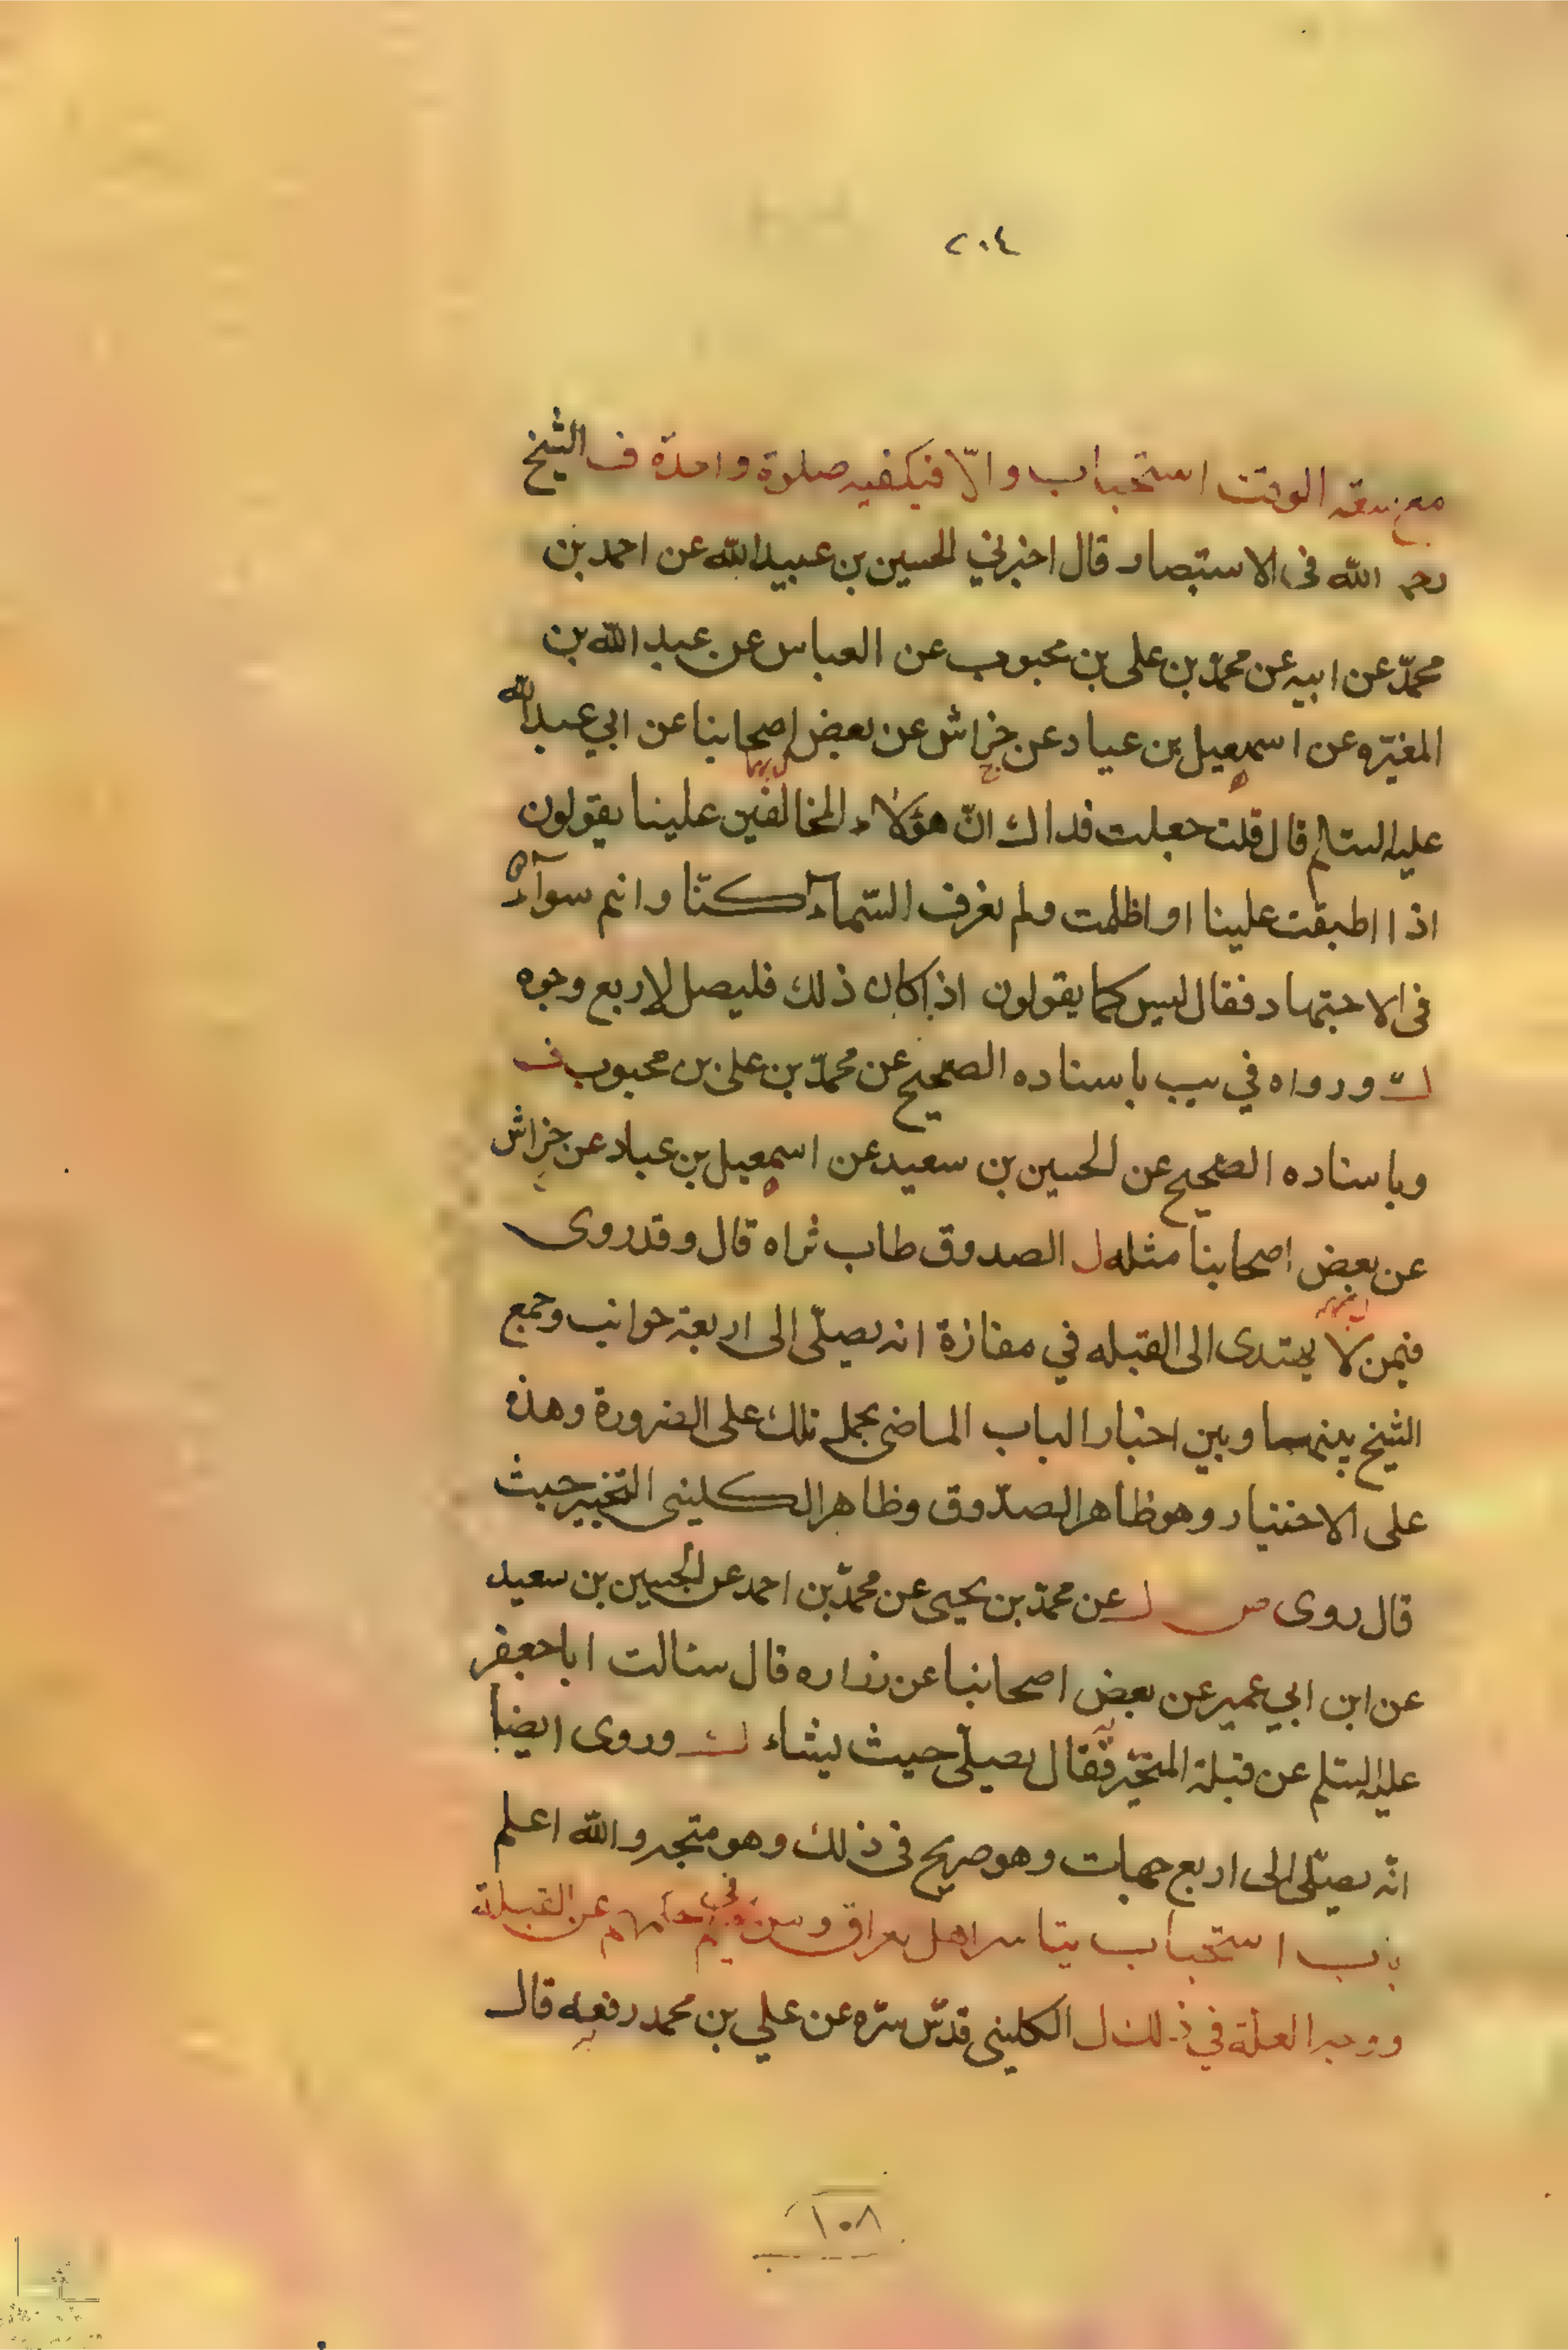 ٢٠٤
مع سعة الوقت استحباب والّا فيكفيه صلوة واحدة ف الشيخ
رحمه الله في الاستبصار قال اخبرني الحسين بن عبيدالله عن احمد بن
محمّد عن ابيه عن محمّد بن على بن محبوب عن العباس عن عبد الله بن
المغيّره عن اسمعيل بن عياد عن خراش عن بعض اصحابنا عن ابي عبدالله
عليه السلام قال قلت جعلت فداك انّ هؤلاء المخالفين علينا يقولون
اذا اطبقت علينا او اظلمت ولم نعرف السّماء كنّا وانتم سوآء
في الاجتهاد فقال ليس كما يقولون اذا كان ذلك فليصل لاربع وجوه
ك ورواه في يب باسناده الصحيح عن محمّد بن على بن محبوب ف
وباسناده الصحيح عن الحسين بن سعيد عن اسمعيل بن عباد عن خراش
عن بعض اصحابنا مثله ل الصدوق طاب ثراه قال وقد روى
فيمن لا يهتدى الى القبله في مفازة انه يصلّى الى اربعة جوانب وجمع
الشيخ بينهما وبين اخبار الباب الماضى بحمل تلك على الضرورة وهذه
على الاختيار وهو ظاهر الصدّوق وظاهر الكلينى التخيير حيث
قال روى ص ل عن محمّد بن يحيى عن محمّد بن احمد عن الحسين بن سعيد
عن ابن ابي عمير عن بعض اصحابنا عن زراره قال سالت ابا جعفر
عليه السلم عن قبلة المتحيّر فقال يصلّى حيث يشاء ك وروى ايضا
انّه يصلّى الى اربع جهات وهو صريح في ذلك وهو متجه والله اعلم
باب استحباب تياسر اهل عراق ومن في عن القبلة
ووجه العلة في ذلك ل الكلينى قدّس سرّه عن علي بن محمد رفعه قال
١٠٨